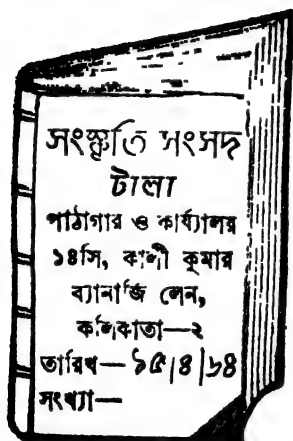 সংস্কৃতি সংসদ
টালা
পাঠাগার ও কার্য্যালয়
১৪সি, কালী কুমার
ব্যানার্জি লেন,
কলিকাতা—২
তারিখ— ১৫|৪|৮৪
সংখ্যা—